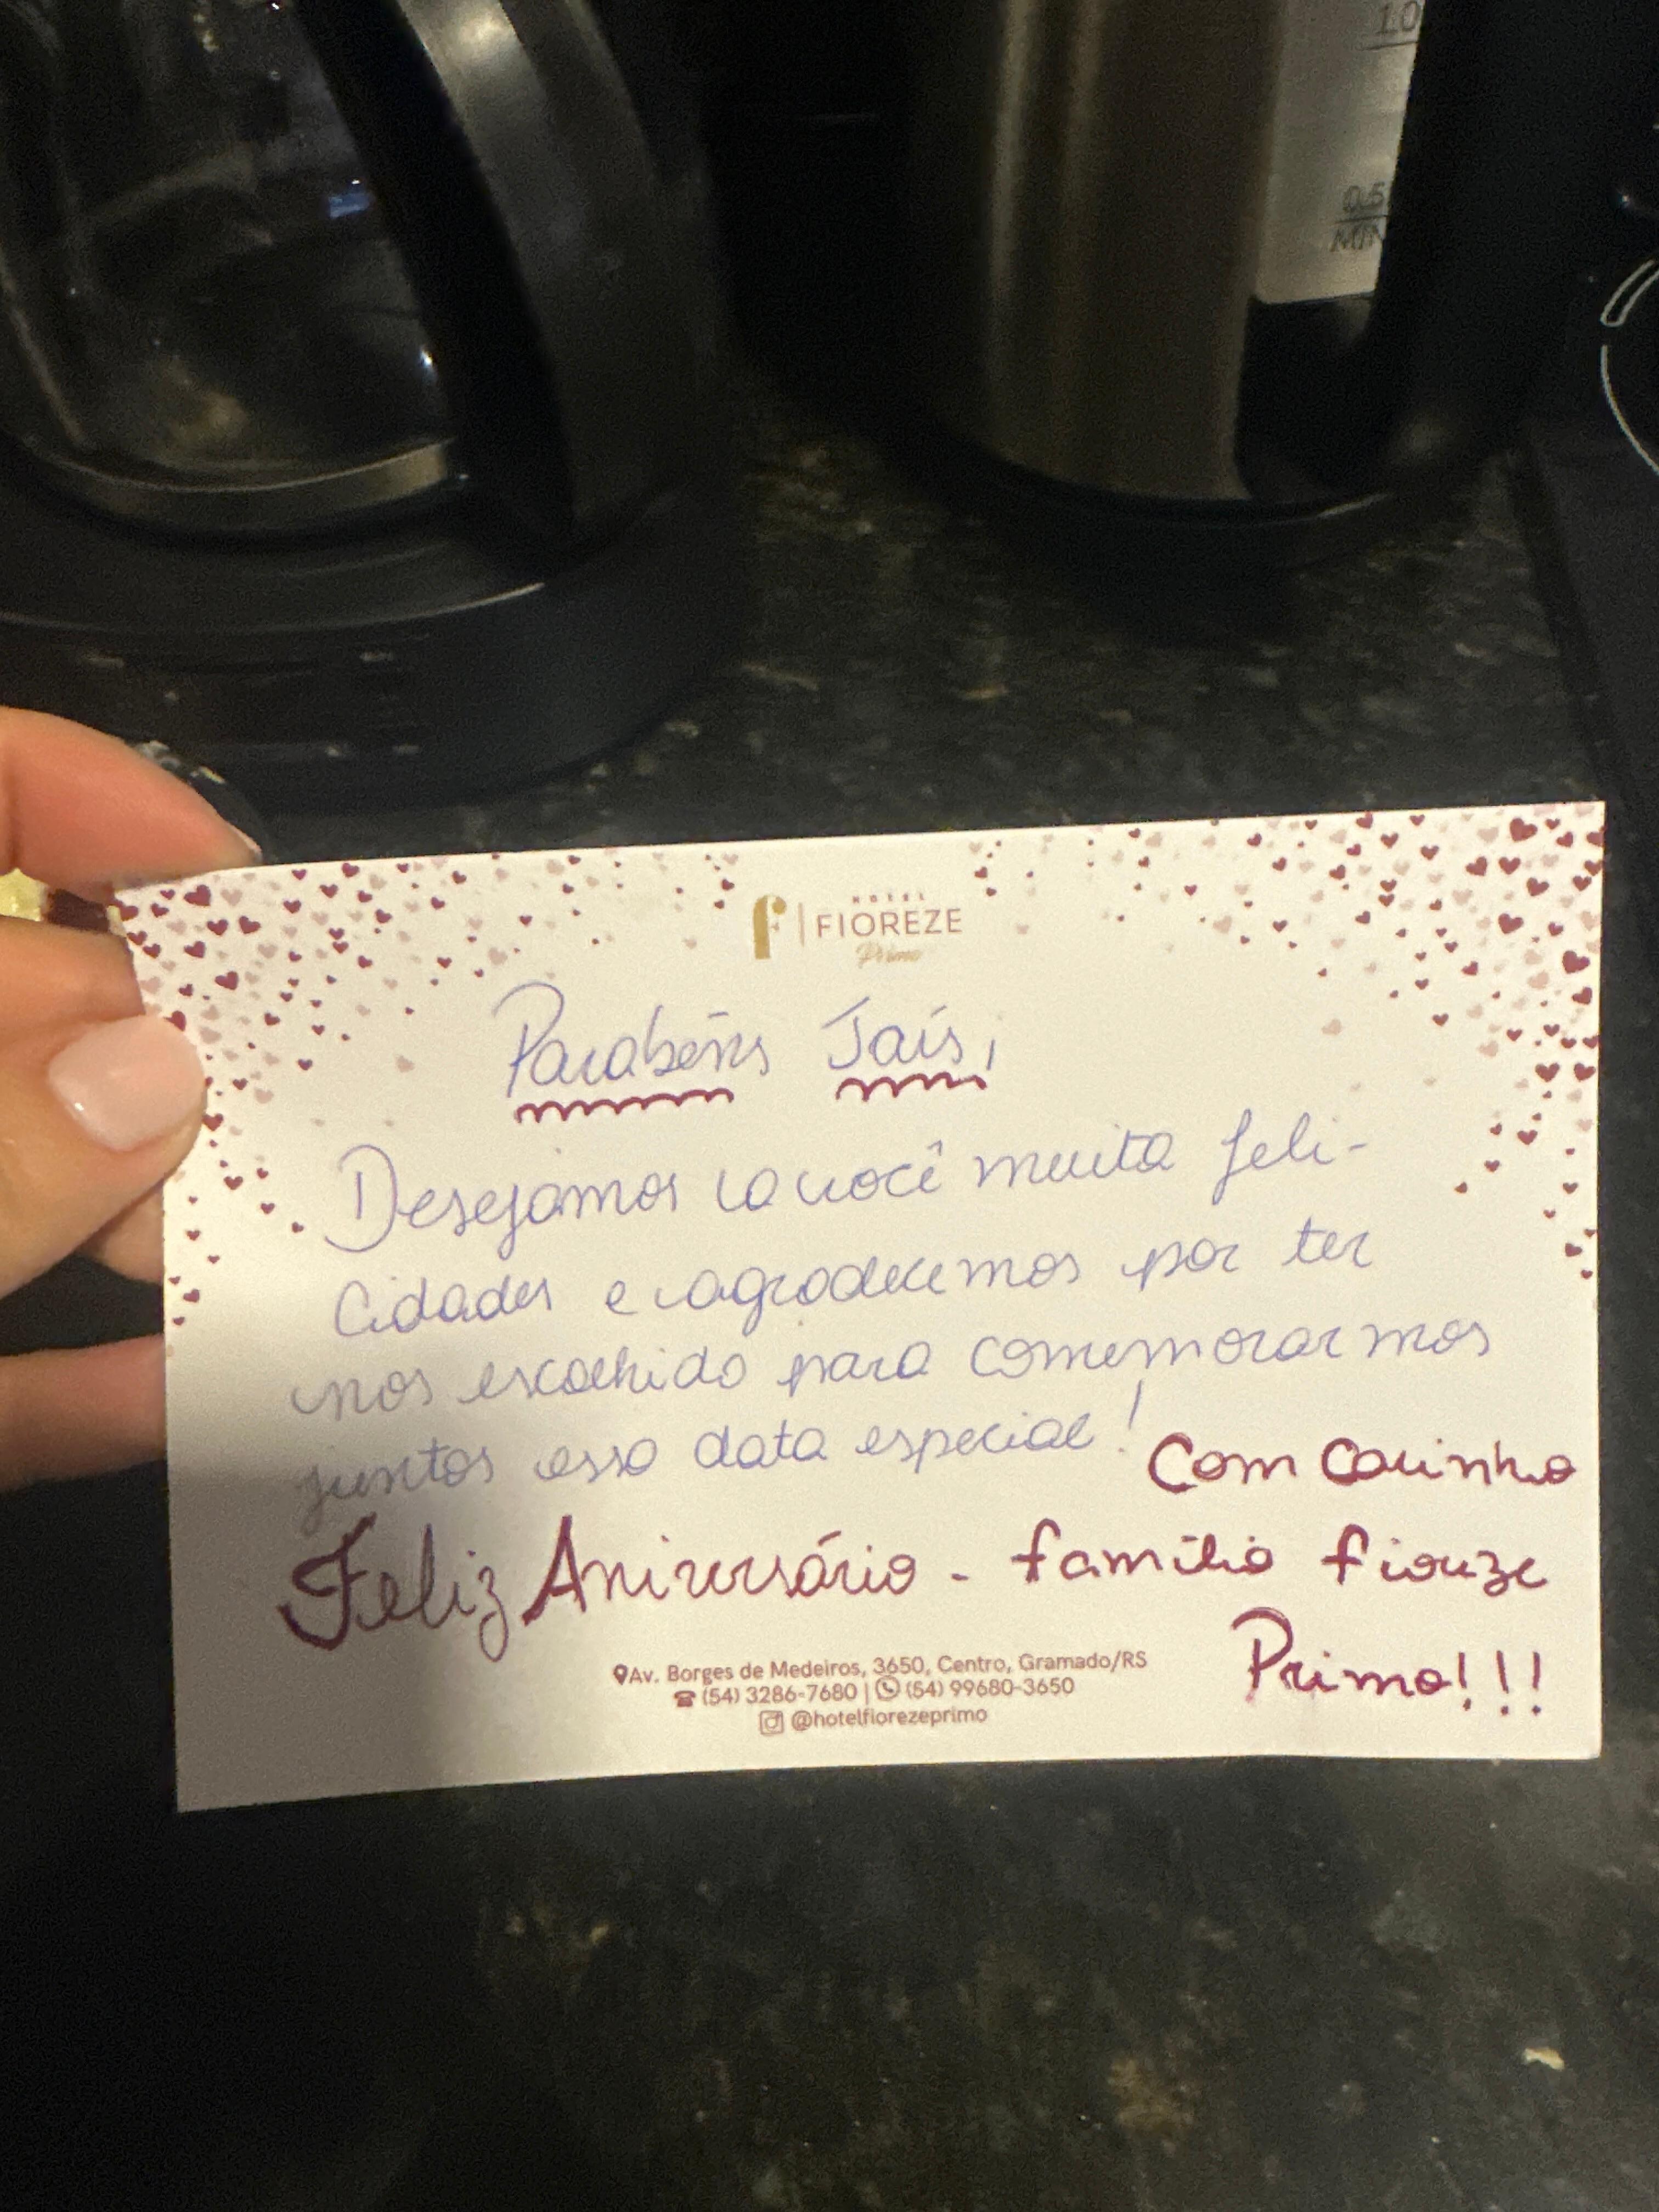 1.0
0.5
MIN
HOTEL
f | FIOREZE
Primo
Parabéns Taís,
Desejamos a você muita feli-
cidades e agradecemos por ter
nos escolhido para comemorarmos
juntos essa data especial!
Com Carinho
Feliz Aniversário - família fioreze
Primo!!!
Av. Borges de Medeiros, 3650, Centro, Gramado/RS
(54) 3286-7680 | (54) 99680-3650
@hotelfiorezeprimo